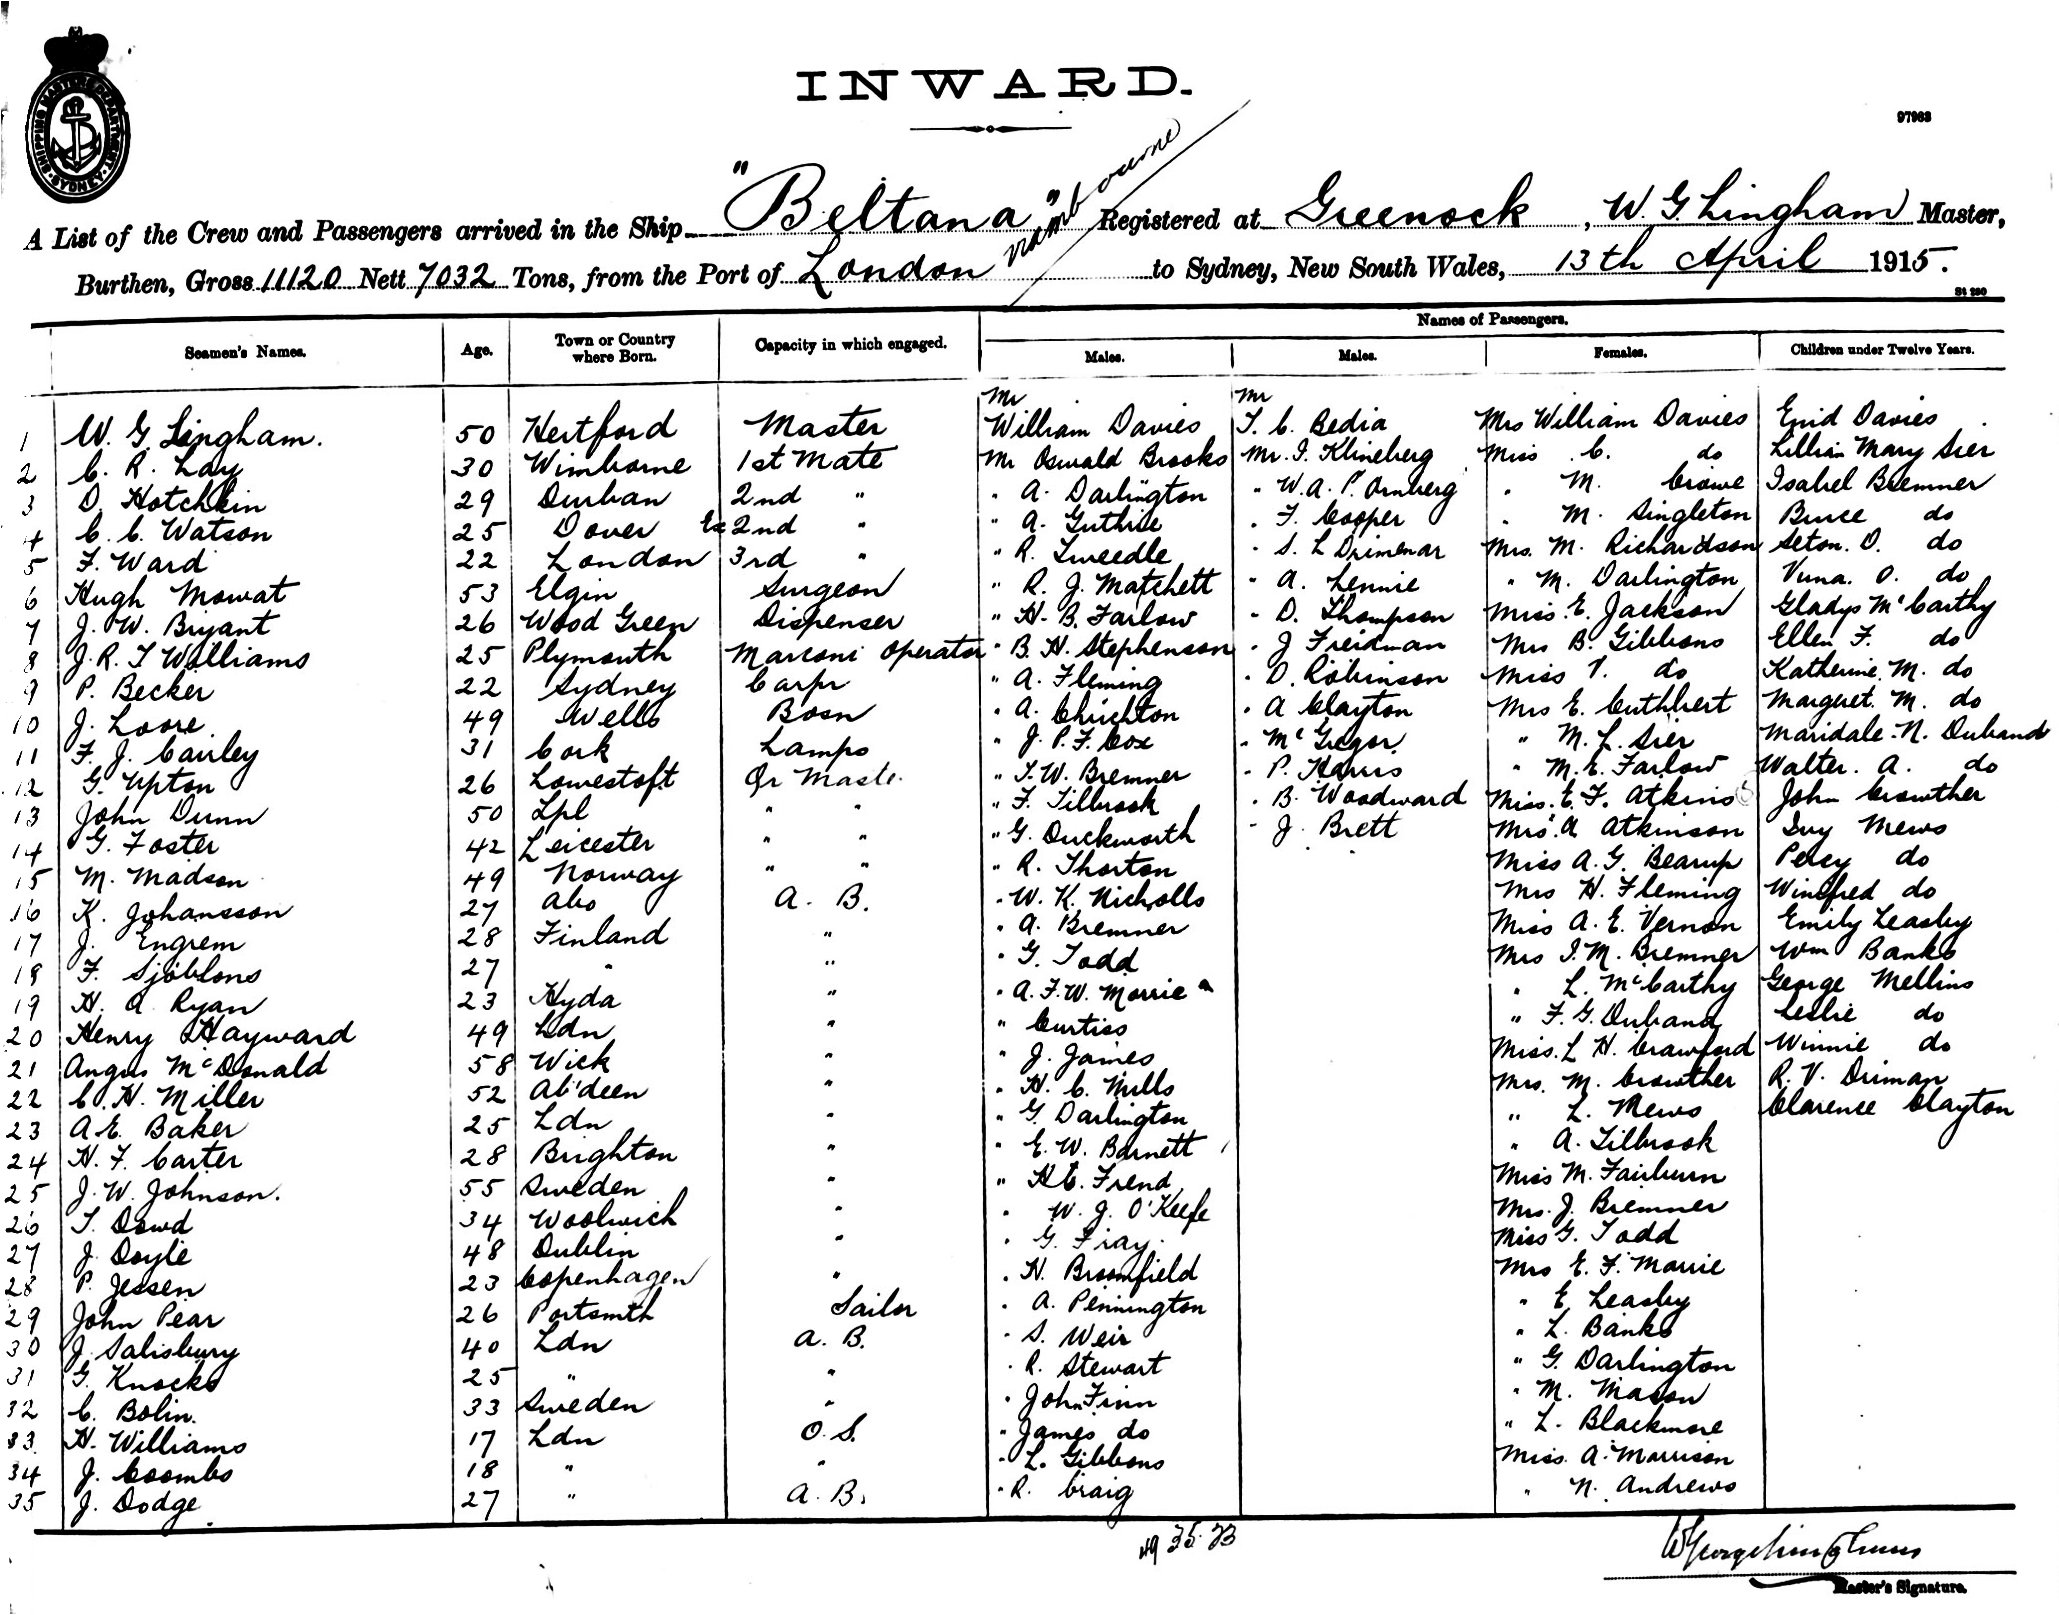 SHIPPING MASTER'S DEPARTMENT
SYDNEY
INWARD.
97963
A List of the Crew and Passengers arrived in the Ship "Beltana" Registered at Greenock, W. G Lingham Master,
Burthen, Gross 11120 Nett 7032 Tons, from the Port of London to Sydney, New South Wales, 13th April 1915.
St 280
Names of Passengers.
Seamen's Names. Age. Town or Country where Born. Capacity in which engaged. Males. Males. Females. Children under Twelve Years.
Mr Mr
1 W. G. Lingham. 50 Hertford Master William Davies T. C. Bedia Mrs William Davies Enid Davies
2 C. R. Lay 30 Wimborne 1st Mate Mr Oswald Brooks Mr. I. Klineberg Miss C. do Lillian Mary Sier
3 D. Hotchkin 29 Durban 2nd " " A. Darlington " W. A. P. Ornberg " M. Crowe Isabel Bremner
4 C. C. Watson 25 Dover Ex 2nd " " A. Guthrie " F. Cooper " M. Singleton Bruce do
5 F. Ward 22 London 3rd " " R. Tweedle " S. L Drimenar Mrs. M. Richardson Seton. O. do
6 Hugh Mowat 53 Elgin Surgeon " R. J. Matchett " A. Lennie " M. Darlington Vuna. O. do
7 J. W. Bryant 26 Wood Green Dispenser " H. B. Farlow " D. Thompson Miss. E. Jackson Gladys McCarthy
8 J. R. T Williams 25 Plymouth Marconi Operator " B. H. Stephenson " J Freidman Mrs B. Gibbons Ellen F. do
9 P. Becker 22 Sydney Carpr " A. Fleming " D. Robinson Miss V. do Katherine. M. do
10 J. Loore 49 Wells Bosn " A. Chrichton " A Clayton Mrs E. Cuthbert Margaret. M. do
11 F. J. Cauley 31 Cork Lamps " J. P. F. Cox " McGregor. " M. L. Sier Maridale. N. Duband
12 G. Upton 26 Lowestoft Qr Master " T. W. Bremner " P. Harris " M. E. Farlow Walter. A. do
13 John Dunn 50 Lpl " " " F. Tilbrook " B. Woodward Miss. E. F. Atkins John Crowther
14 G. Foster 42 Leicester " " " G. Duckworth " J. Brett Mrs. A Atkinson Ivy Mews
15 M. Madsen 49 Norway " " " R. Thorton Miss A. G. Bearup Percy do
16 K. Johansson 27 Abo A. B. " W. K. Nicholls Mrs H. Fleming Winifred do
17 J. Engrem 28 Finland " " A. Bremner Miss A. E. Vernon Emily Leasby
18 F. Sjöblons 27 " " " G. Todd Mrs I. M. Bremner Wm Banks
19 H. A Ryan 23 Hyda " " A. F. W. Morrie " L. McCarthy George Mellins
20 Henry Hayward 49 Ldn " " Curtiss " F. G. Duband Leslie do
21 Angus McDonald 58 Wick " " J. James Miss. L H. Crawford Winnie do
22 C. H. Miller 52 Ab'deen " " H. C. Mills Mrs. M. Crowther R. V. Driman
23 A. E. Baker 25 Ldn " " G. Darlington " L. Mews Clarence Clayton
24 H. F. Carter 28 Brighton " " E. W. Barnett " A. Tilbrook
25 J. W. Johnson. 55 Sweden " " H C. Frend Miss M. Fairburn
26 T. Dowd 34 Woolwich " " W. J. O'Keefe Mrs. J. Bremner
27 J. Doyle 48 Dublin " " G. Fray. Miss G. Todd
28 P. Jessen 23 Copenhagen " " H. Broomfield Mrs E. F. Morrie
29 John Pear 26 Portsmth Sailor " A. Pennington " E Leasby
30 J. Salisbury 40 Ldn A. B. " S. Weir " L. Banks
31 G. Knocks 25 " " " R. Stewart " G. Darlington
32 C. Bolin. 33 Sweden " " John Finn " M. Mason
33 H. Williams 17 Ldn O. S. " James do " L. Blackmore
34 J. Coombs 18 " " " L. Gibbons Miss. A. Morrison
35 J. Dodge. 27 " A. B. " R. Craig " N. Andrews
49 35. 23
Master's Signature.